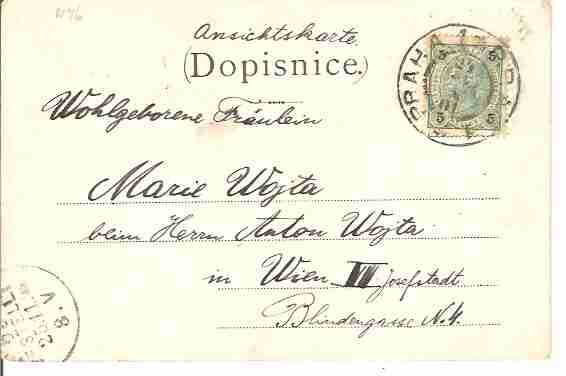 Ansichtskarte.
(Dopisnice.)
Wohlgeborene Fräulein
Marie Wojta
beim Herrn Anton Wojta
in Wien VIII Josefstadt
Blindengasse N. 4.
PRAHA
5 5
5 5
8. V